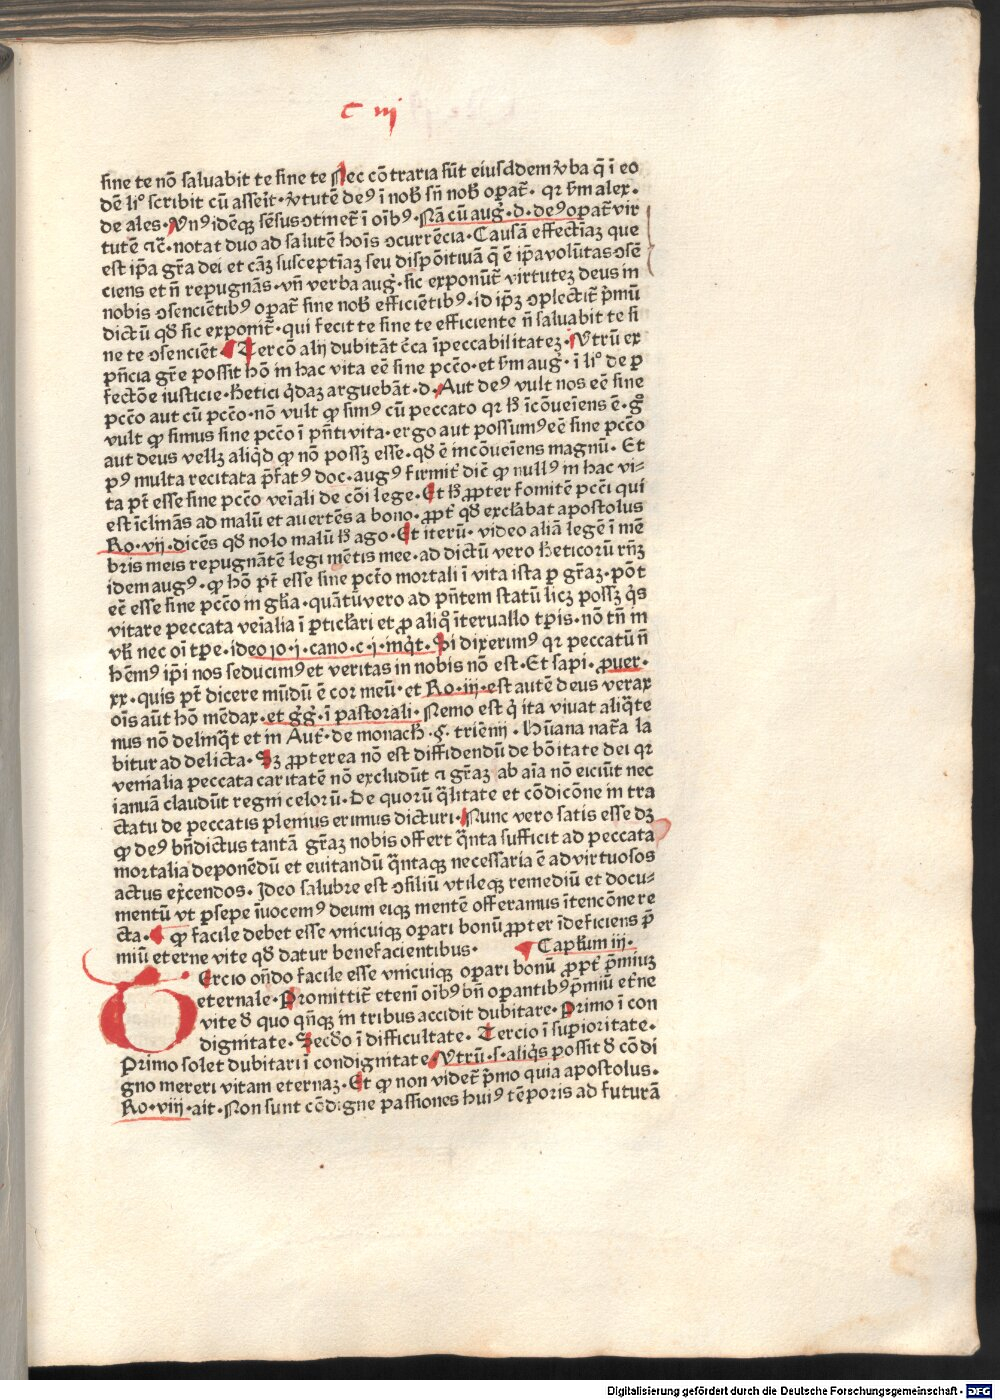 c iij
sine te nō saluabit te sine te Nec cōtraria sūt eiusddem v̄ba q̄ ī eo
dē li° scribit cū asseit· v̄tutē deꝰ ī nob̄ sn̄ nob̄ oꝑat̄· qꝛ ẜm alex·
de ales· Vnꝰ idēqꝫ sēsus ꝯtinet̄ ī oībꝰ· Nā cū auḡ· d· deꝰ oꝑat̄ vir
tutē ⁊c̄· notat duo ad salutē hoīs ꝯcurrēcia· Causā effectiāꝫ que
est ip̄a gr̄a dei et cāꝫ susceptīaꝫ seu dispōitiuā q̄ ē ip̄a volūtas ꝯsē
ciens et n̄ repugnās· vn̄ verba auḡ· sic exponūt̄ virtuteꝫ deus in
nobis ꝯsencientibꝰ oꝑat̄ sine nob̄ efficiētibꝰ· id ip̄ꝫ ꝯplectit̄ p̄mū
dictū qd̄ sic exponit̄· qui fecit te sine te efficiente n̄ saluabit te si
ne te ꝯsenciēt Tercō alij dubitāt c̄ca īpeccabilitateꝫ· Vtrū ex
p̄n̄cia gr̄e possit hō in hac vita eē sine pcc̄o· et ẜm auḡ· ī li° de ꝑ
fectōe iusticie· hetici q̄daꝫ arguebāt· d· Aut deꝰ vult nos eē sine
pcc̄o aut cū pcc̄o· nō vult ꝙ simꝰ cū peccato qꝛ h̄ īcōueiens ē· g°
vult ꝙ simus sine pcc̄o ī p̄nti vita· ergo aut possumꝰ eē sine pcc̄o
aut deus velleꝫ aliq̄d ꝙ nō possꝫ esse· qd̄ ē incōueiens magnū· Et
pꝰ multa recitata p̄fatꝰ doc· augꝰ firmit̄ dic̄ ꝙ nullꝰ in hac vi⸗
ta pt̄ esse sine pcc̄o veīali de cōi lege· Et h̄ ꝓpter fomitē pcc̄i qui
est īclinās ad malū et auertēs a bono· ꝓpt̄ qd̄ exclābat apostolus
Ro· vij· dicēs qd̄ nolo malū h̄ ago· Et iterū· video aliā legē ī mē
bris meis repugnātē legi mētis mee· ad dictū vero heticorū rn̄ꝫ
idem augꝰ· ꝙ hō pt̄ esse sine pct̄o mortali ī vita ista ꝑ gr̄aꝫ· pōt
eē esse sine pct̄o in gl̄ia· quātū vero ad p̄ntem statū licꝫ possꝫ q̄s
vitare peccata veīalia ī ꝑticl̄ari et ꝓ aliq° īteruallo tꝑis· nō tn̄ in
vl̄i nec oī tꝑe· ideo jo· j· cano· c· j· inq̄t· Si dixerimꝰ qꝛ peccatū n̄
hēmꝰ ip̄i nos seducimꝰ et veritas in nobis nō est· Et sapi· ꝓuer·
xx· quis pt̄ dicere mūdū ē cor meū· et Ro· iij· est autē deus verax
oīs aūt hō mēdax· et g̅g̅· ī pastorali· Nemo est q̄ ita viuat aliq̄te
nus nō delinq̄t et in Aut̄· de monach̄· §· trienij· hūana nat̄a la
bitur ad delicta· Sꝫ ꝓpterea nō est diffidendū de bōitate dei qꝛ
venialia peccata caritatē nō excludūt ⁊ gr̄aꝫ ab aīa nō eiciūt nec
ianuā claudūt regni celorū· De quorū q̄litate et cōdicōne in tra
ctatu de peccatis plenius erimus dicturi· Nunc vero satis esse dꝫ
ꝙ deꝰ bn̄dictus tantā gr̄aꝫ nobis offert q̄nta sufficit ad peccata
mortalia deponēdū et euitandū q̄ntaqꝫ necessaria ē ad virtuosos
actus ex̄cendos· Ideo salubre est ꝯsiliū vtileqꝫ remediū et docu⸗
mentū vt ꝑsepe īuocemꝰ deum eiqꝫ mentē offeramus ītencōne re
cta· ꝙ facile debet esse vnicuiqꝫ oꝑari bonū ꝓpter īdeficiens p̄
miū eterne vite qd̄ datur benefacientibus· Capl̄um iij·
Tercio on̄do facile esse vnicuiqꝫ oꝑari bonū ꝓpt̄ p̄miuꝫ
eternale· Promittit̄ etenī oībꝰ bn̄ oꝑantibꝰ p̄miū et̄ne
vite d̄ quo qn̄qꝫ in tribus accidit dubitare· Primo ī con
dignitate· Secd̄o ī difficultate· Tercio ī suꝑioritate·
Primo solet dubitari ī condignitate· Vtrū· s· aliq̄s possit d̄ cōdi
gno mereri vitam eternaꝫ· Et ꝙ non videt̄ p̄mo quia apostolus·
Ro· viij· ait· Non sunt cōdigne passiones huiꝰ tēporis ad futurā